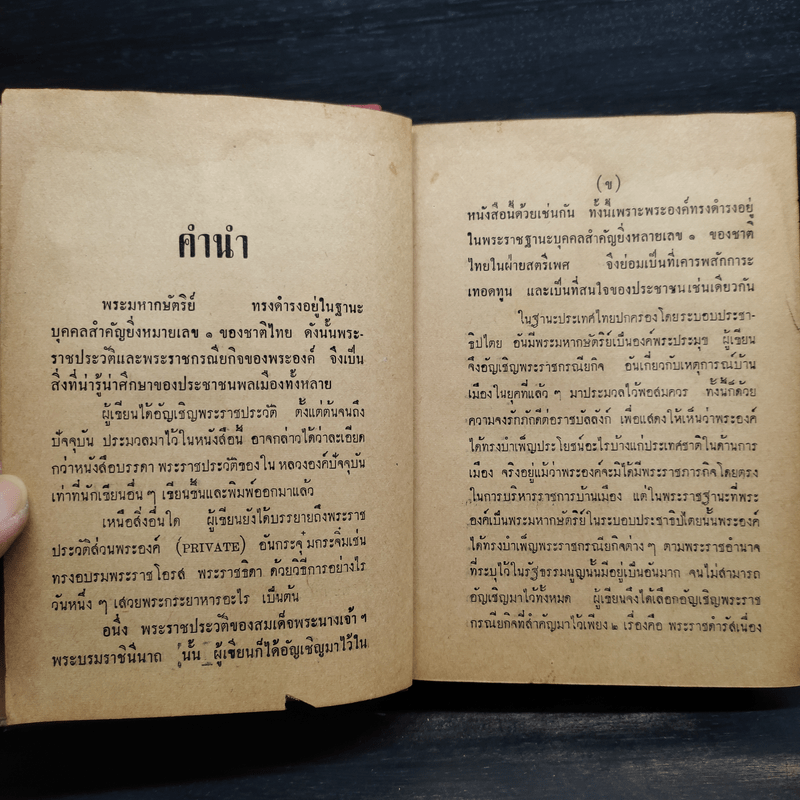 คำนำ
พระมหากษัตริย์ ทรงดำรงอยู่ในฐานะ
บุคคลสำคัญยิ่งหมายเลข ๑ ของชาติไทย ดังนั้นพระ-
ราชประวัติและพระราชกรณียกิจของพระองค์ จึงเป็น
สิ่งที่น่ารู้น่าศึกษาของประชาชนพลเมืองทั้งหลาย
ผู้เขียนได้อัญเชิญพระราชประวัติ ตั้งแต่ต้นจนถึง
ปัจจุบัน ประมวลมาไว้ในหนังสือนี้ อาจกล่าวได้ว่าละเอียด
กว่าหนังสือบรรดา พระราชประวัติของใน หลวงองค์ปัจจุบัน
เท่าที่นักเขียนอื่น ๆ เขียนขึ้นและพิมพ์ออกมาแล้ว
เหนือสิ่งอื่นใด ผู้เขียนยังได้บรรยายถึงพระราช
ประวัติส่วนพระองค์ (PRIVATE) อันกระจุ๋มกระจิ๋มเช่น
ทรงอบรมพระราชโอรส พระราชธิดา ด้วยวิธีการอย่างไร
วันหนึ่ง ๆ เสวยพระกระยาหารอะไร เป็นต้น
อนึ่ง พระราชประวัติของสมเด็จพระนางเจ้า ฯ
พระบรมราชินีนาถ นั้น ผู้เขียนก็ได้อัญเชิญมาไว้ใน
(ข)
หนังสือนี้ด้วยเช่นกัน ทั้งนี้เพราะพระองค์ทรงดำรงอยู่
ในพระราชฐานะบุคคลสำคัญยิ่งหลายเลข ๑ ของชาติ
ไทยในฝ่ายสตรีเพศ จึงย่อมเป็นที่เคารพสักการะ
เทอดทูน และเป็นที่สนใจของประชาชนเช่นเดียวกัน
ในฐานะประเทศไทยปกครองโดยระบอบประชา-
ธิปไตย อันมีพระมหากษัตริย์เป็นองค์พระประมุข ผู้เขียน
จึงอัญเชิญพระราชกรณียกิจ อันเกี่ยวกับเหตุการณ์บ้าน
เมืองในยุคที่แล้ว ๆ มาประมวลไว้พอสมควร ทั้งนี้ก็ด้วย
ความจงรักภักดีต่อราชบัลลังก์ เพื่อแสดงให้เห็นว่าพระองค์
ได้ทรงบำเพ็ญประโยชน์อะไรบ้างแก่ประเทศชาติในด้านการ
เมือง จริงอยู่แม้ว่าพระองค์จะมิได้มีพระราชภารกิจโดยตรง
ในการบริหารราชการบ้านเมือง แต่ในพระราชฐานะที่พระ
องค์เป็นพระมหากษัตริย์ในระบอบประชาธิปไตยนั้นพระองค์
ได้ทรงบำเพ็ญพระราชกรณียกิจต่าง ๆ ตามพระราชอำนาจ
ที่ระบุไว้ในรัฐธรรมนูญนั้นมีอยู่เป็นอันมาก จนไม่สามารถ
อัญเชิญมาไว้ทั้งหมด ผู้เขียนจึงได้เลือกอัญเชิญพระราช
กรณียกิจที่สำคัญมาไว้เพียง ๒ เรื่องคือ พระราชดำรัสเนื่อง